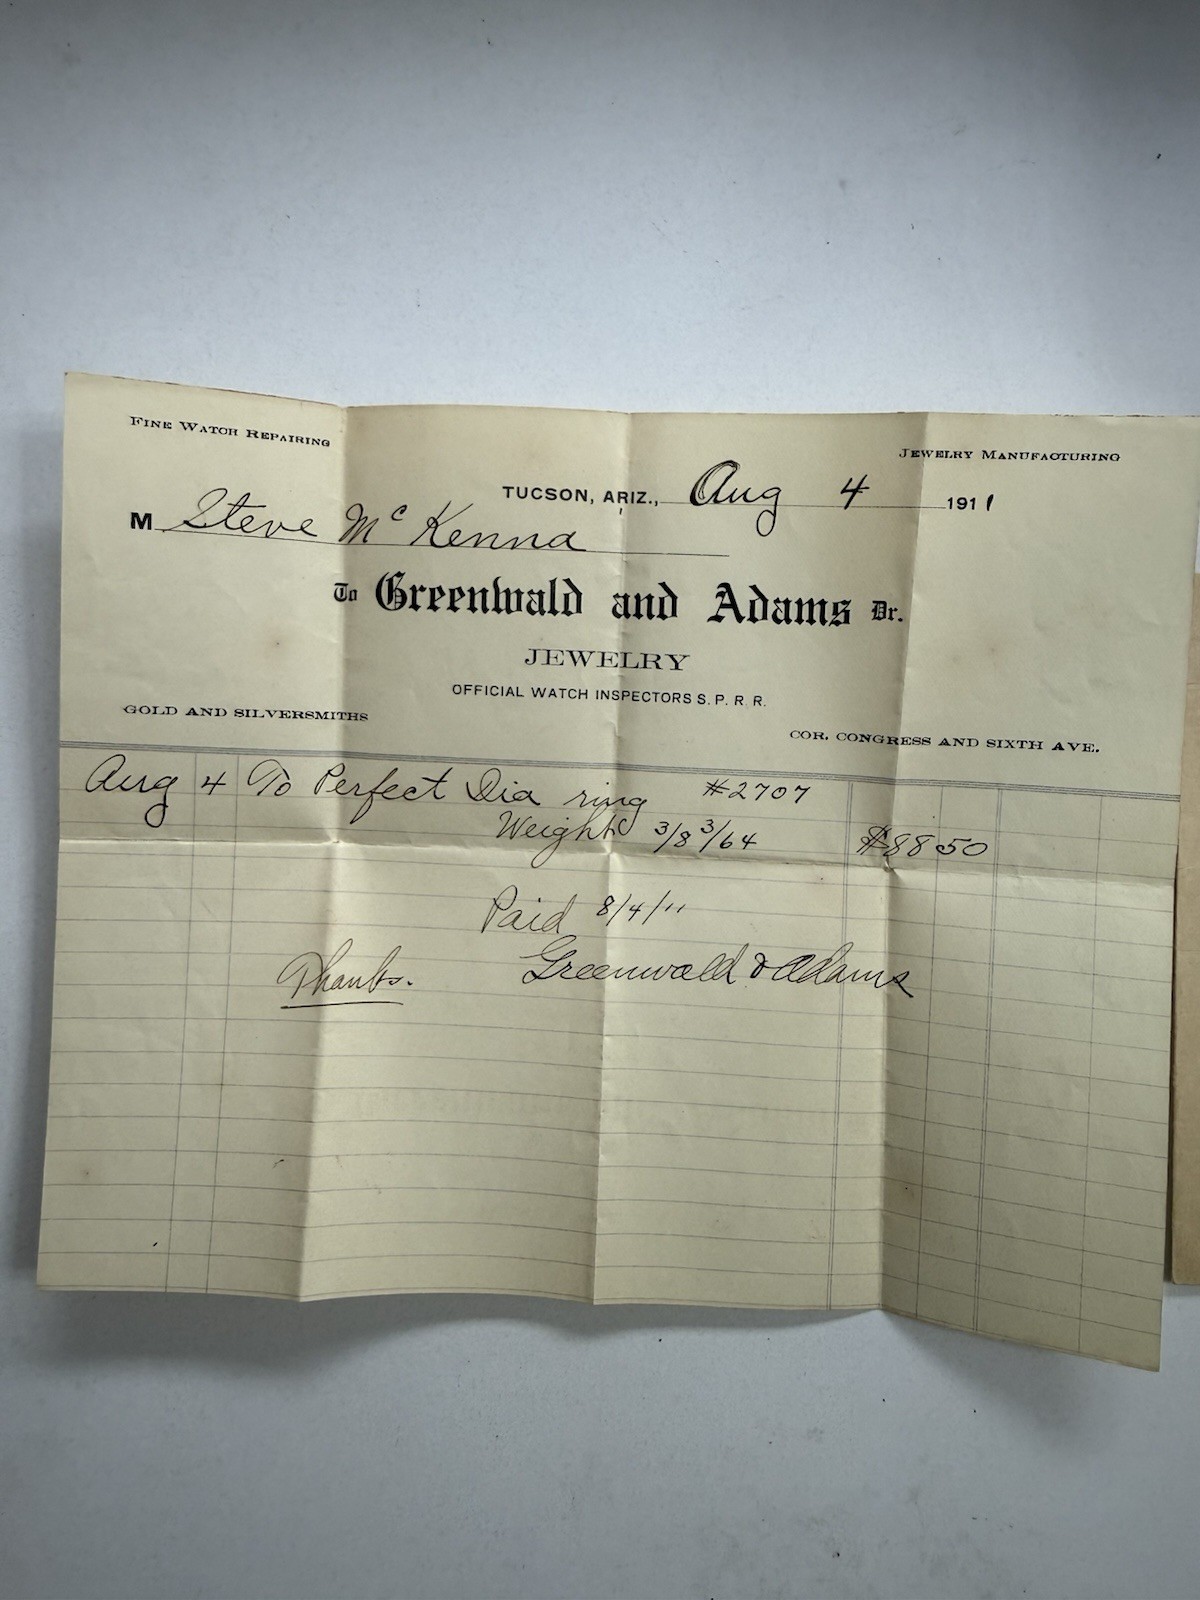 FINE WATCH REPAIRING
JEWELRY MANUFACTURING
TUCSON, ARIZ., Aug 4 1911
M Steve McKenna
To Greenwald and Adams Dr.
JEWELRY
OFFICIAL WATCH INSPECTORS S. P. R. R.
GOLD AND SILVERSMITHS
COR. CONGRESS AND SIXTH AVE.
Aug 4 To Perfect Dia ring #2707
Weight 3/8 3/64 $88 50
Paid 8/4/11
Thanks. Greenwald & Adams